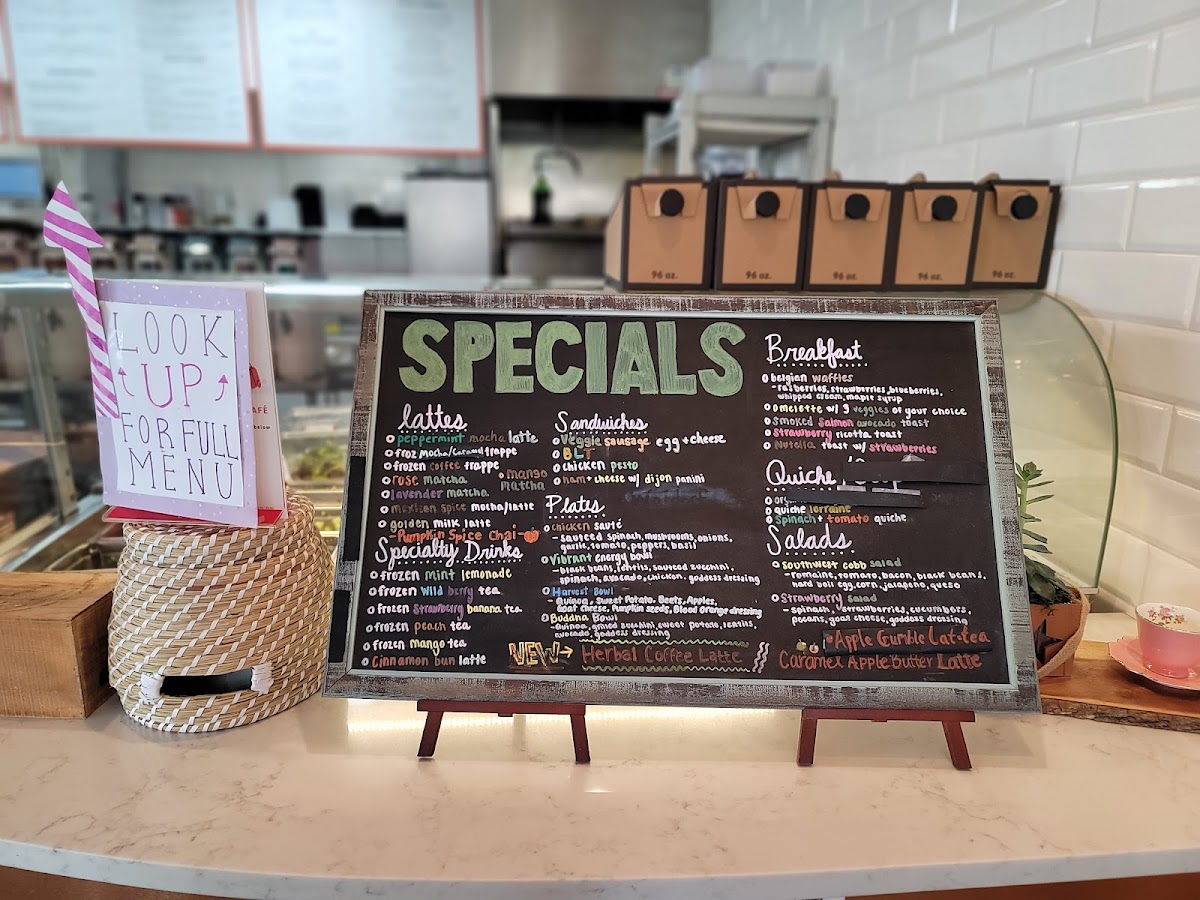 LOOK
UP
FOR FULL
MENU
AFÉ
below
96 oz.
96 oz.
96 oz.
96 oz.
96 oz.
SPECIALS
lattes
peppermint mocha latte
froz mocha/caramel frappe
frozen coffee frappe
rose matcha
mango
matcha
lavender matcha
mexican spice mocha/latte
golden milk latte
-Pumpkin Spice Chai-
Specialty Drinks
frozen mint lemonade
frozen wild berry tea
frozen strawberry banana tea
frozen peach tea
frozen mango tea
cinnamon bun latte
Sandwiches
Veggie sausage egg + cheese
BLT
chicken pesto
ham + cheese w/ dijon panini
Plates
chicken sauté
- sauteed spinach, mushrooms, onions,
garlic, tomato, peppers, basil
Vibrant energy bowl
- black beans, lentils, sauteed zucchini,
spinach, avocado, chicken, goddess dressing
Harvest Bowl
- Quinoa, Sweet Potato, Beets, Apples,
Goat cheese, Pumpkin seeds, Blood Orange dressing
Buddha Bowl
- Quinoa, grilled zucchini, sweet potato, lentils,
avocado, goddess dressing
NEW→ Herbal Coffee Latte
Breakfast
belgian waffles
- rasberries, strawberries, blueberries,
whipped cream, maple syrup
omelette w/ 3 veggies of your choice
smoked salmon avocado toast
strawberry ricotta toast
Nutella toast w/ strawberries
Quiche
quiche lorraine
spinach + tomato quiche
Salads
southwest cobb salad
- romaine, tomato, bacon, black beans,
hard boil egg, corn, jalapeno, queso
strawberry salad
- spinach, strawberries, cucumbers,
pecans, goat cheese, goddess dressing
Apple Crumble Lat-tea
Caramel Apple Butter Latte